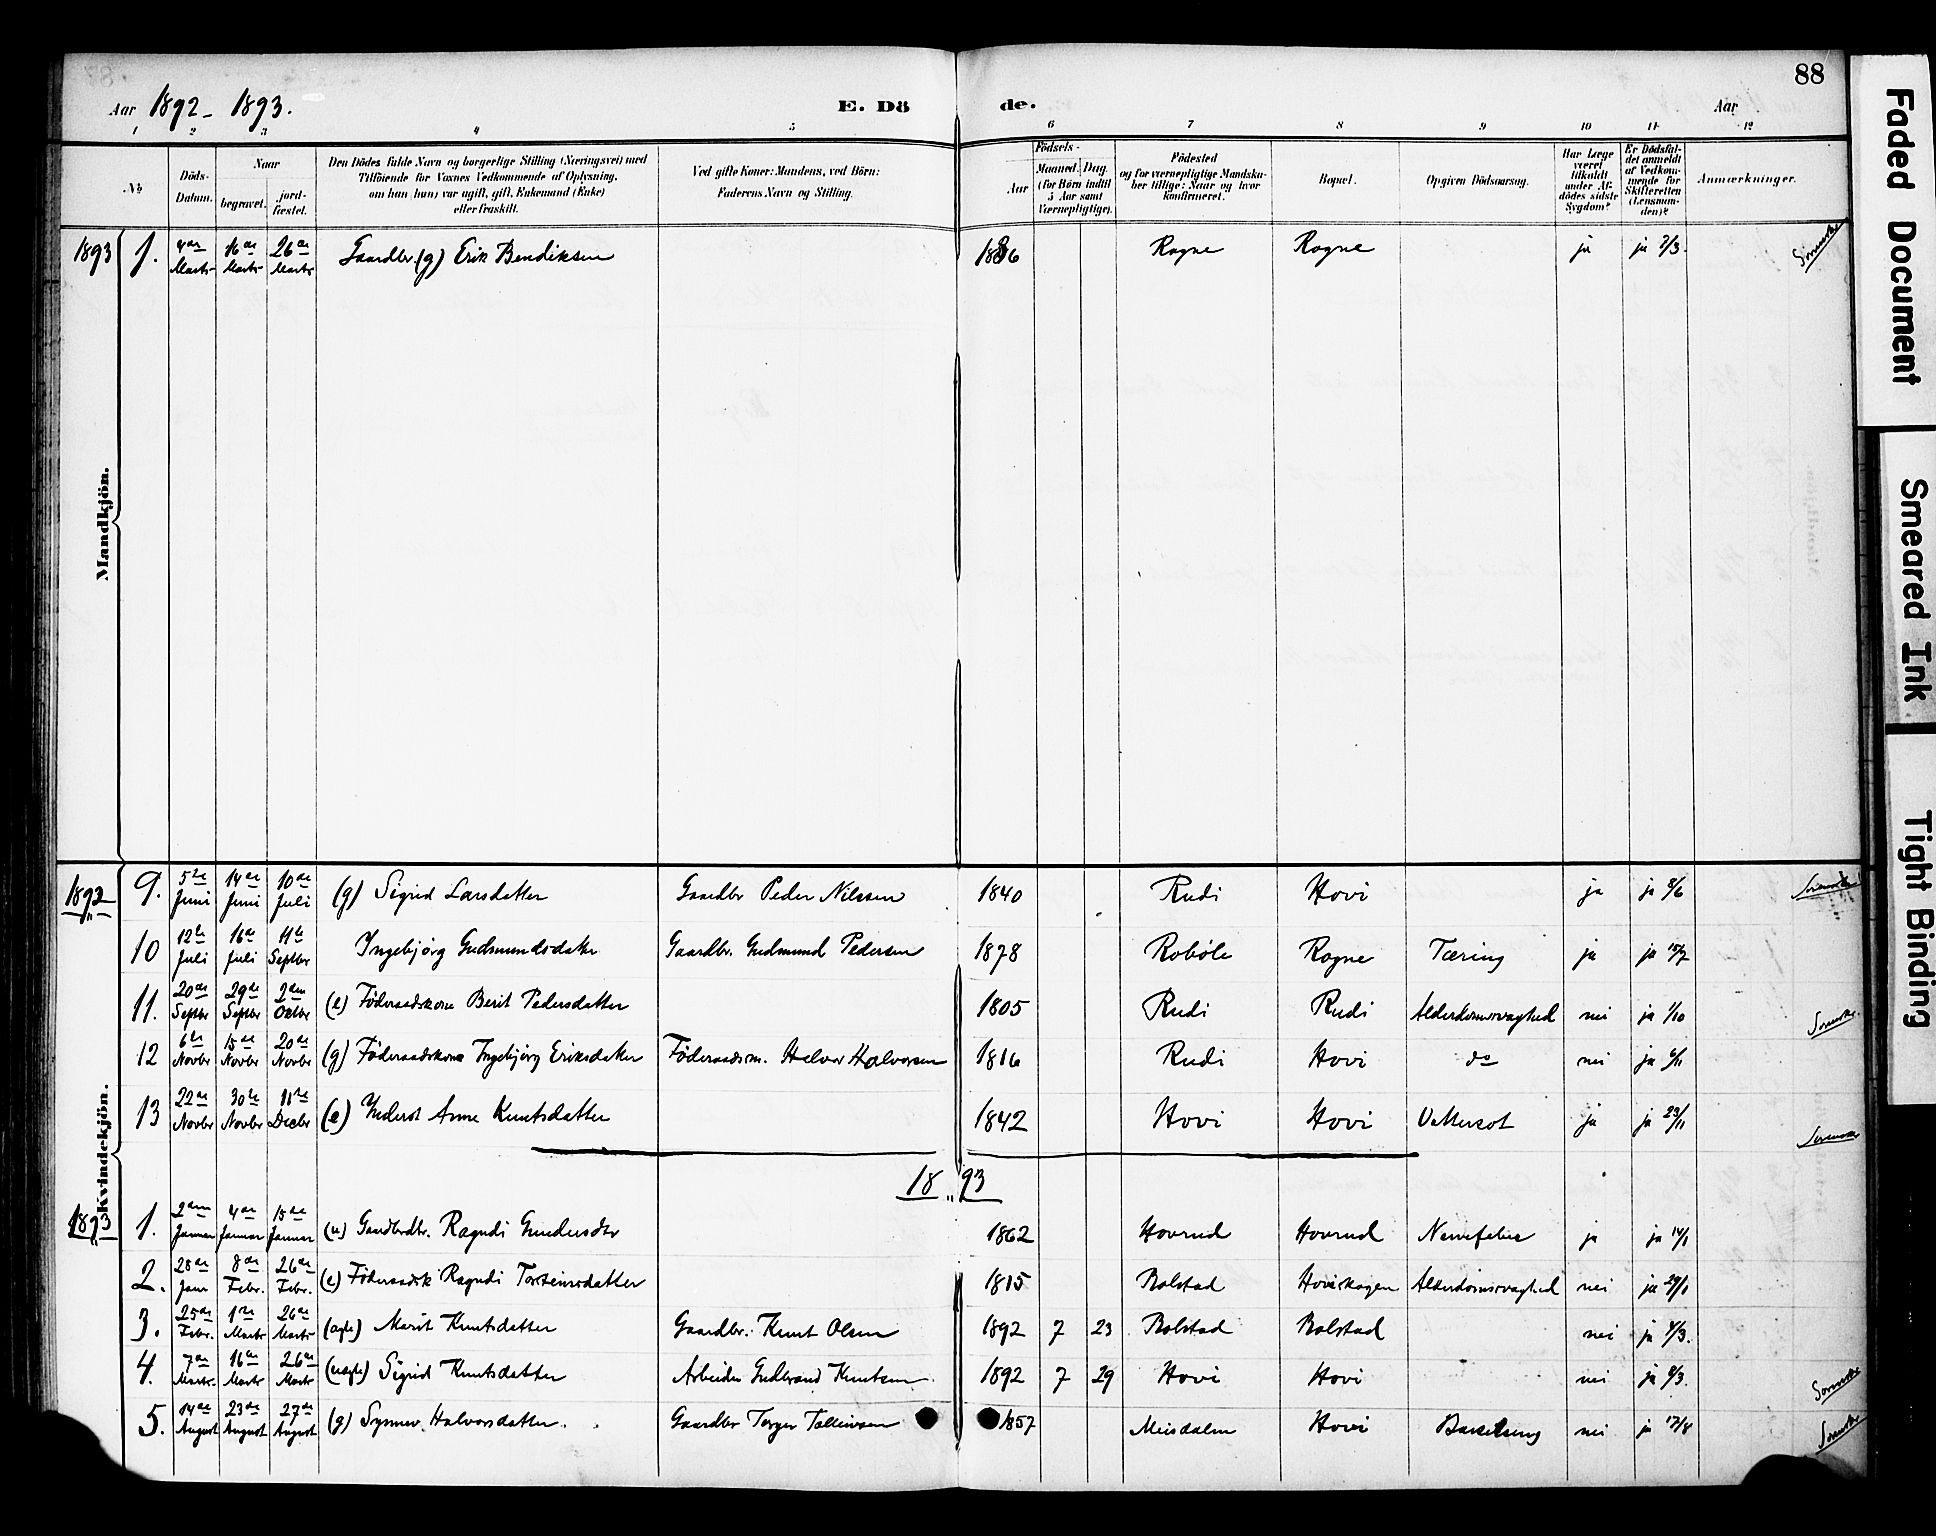 88
Aar 1892 - 1893.
E. Dö de.
Aar
1 2 3 4 5 6 7 8 9 10 11 12
№
Döds-Datum.
Naar
begravet.
jord-fæstet.
Den Dödes fulde Navn og borgerlige Stilling (Næringsvei) med
Tilföiende for Voxnes Vedkommende af Oplysning,
om han (hun) var ugift, gift, Enkemand (Enke)
eller fraskilt.
Ved gifte Koner: Mandens, ved Börn:
Faderens Navn og Stilling.
Födsels-
Aar
Maaned. Dag.
(for Börn indtil
5 Aar samt
Værnepligtige).
Födested
og for værnepligtige Mandska-
ber tillige: Naar og hvor
konfirmeret.
Bopæl.
Opgiven Dödsaarsag.
Har Læge
været
tilkaldt
under Af-
dödes sidste
Sygdom?
Er Dödsfal-
det anmeldt
af Vedkom-
mende for
Skifteretten
(Lensman-
den)?
Anmærkninger.
Mandkjön.
1893 1. 4de Marts 16de Marts 26de Marts Gaardbr. (g) Erik Bendiksen Rogne Rogne ja ja 7/3.
Kvindekjön.
1892 9. 5te Juni 14de Juni 10de Juli (g) Sigrid Larsdatter Gaardbr Peder Nilssen 1840 Rudi Hovi ja ja 8/6
10 12te Juli 16de Juli 11te Septbr Ingebjörg Gudmundsdatter Gaardbr. Gudmund Pedersen 1878 Roböle Rogne Tæring ja ja 15/7
11. 20de Septbr 29de Septbr 2den Oktbr (e) Föderaadskone Berit Pedersdatter 1805 Rudi Rudi Alderdomssvaghed nei ja 1/10
12 6te Novbr 15de Novbr 20de Novbr (g) Föderaadskone Ingebjörg Eriksdatter Föderaadsm. Halvor Halvorsen 1816 Rudi Hovi do nei ja 9/11
13 22de Novbr 30te Novbr 11te Decbr (e) Inderst Anne Knutsdatter 1842 Hovi Hovi Vattersot ja ja 23/11
1893
1893 1. 2den Januar 4de Januar 15de Januar (u) Gaardbrdtr. Ragndi Gundersdtr 1862 Hovrud Hovrud Nervefeber ja ja 14/1
2. 28de Janr 8de Febr. 26de Febr. (e) Föderaadsk Ragndi Torsteinsdatter 1815 Bolstad Hoviskogen Alderdomssvaghed nei ja 29/1
3. 25de Febr. 1ste Marts 26de Marts (ægte) Marit Knutsdatter Gaardbr. Knut Olsen 1892 7 23 Bolstad Bolstad nei ja 4/3.
4. 7de Marts. 16de Marts 26de Marts (uægte) Sigrid Knutsdatter Arbeider Gudbrand Knutsen 1892 7 29 Hovi Hovi nei ja 8/3.
5. 14de August 23de August 27de August (g) Synnev Halvorsdatter. Gaardbr Torger Tolleivsen 1857 Hovi Barselseng nei ja 17/8
Faded Document
Smeared Ink
Tight Binding